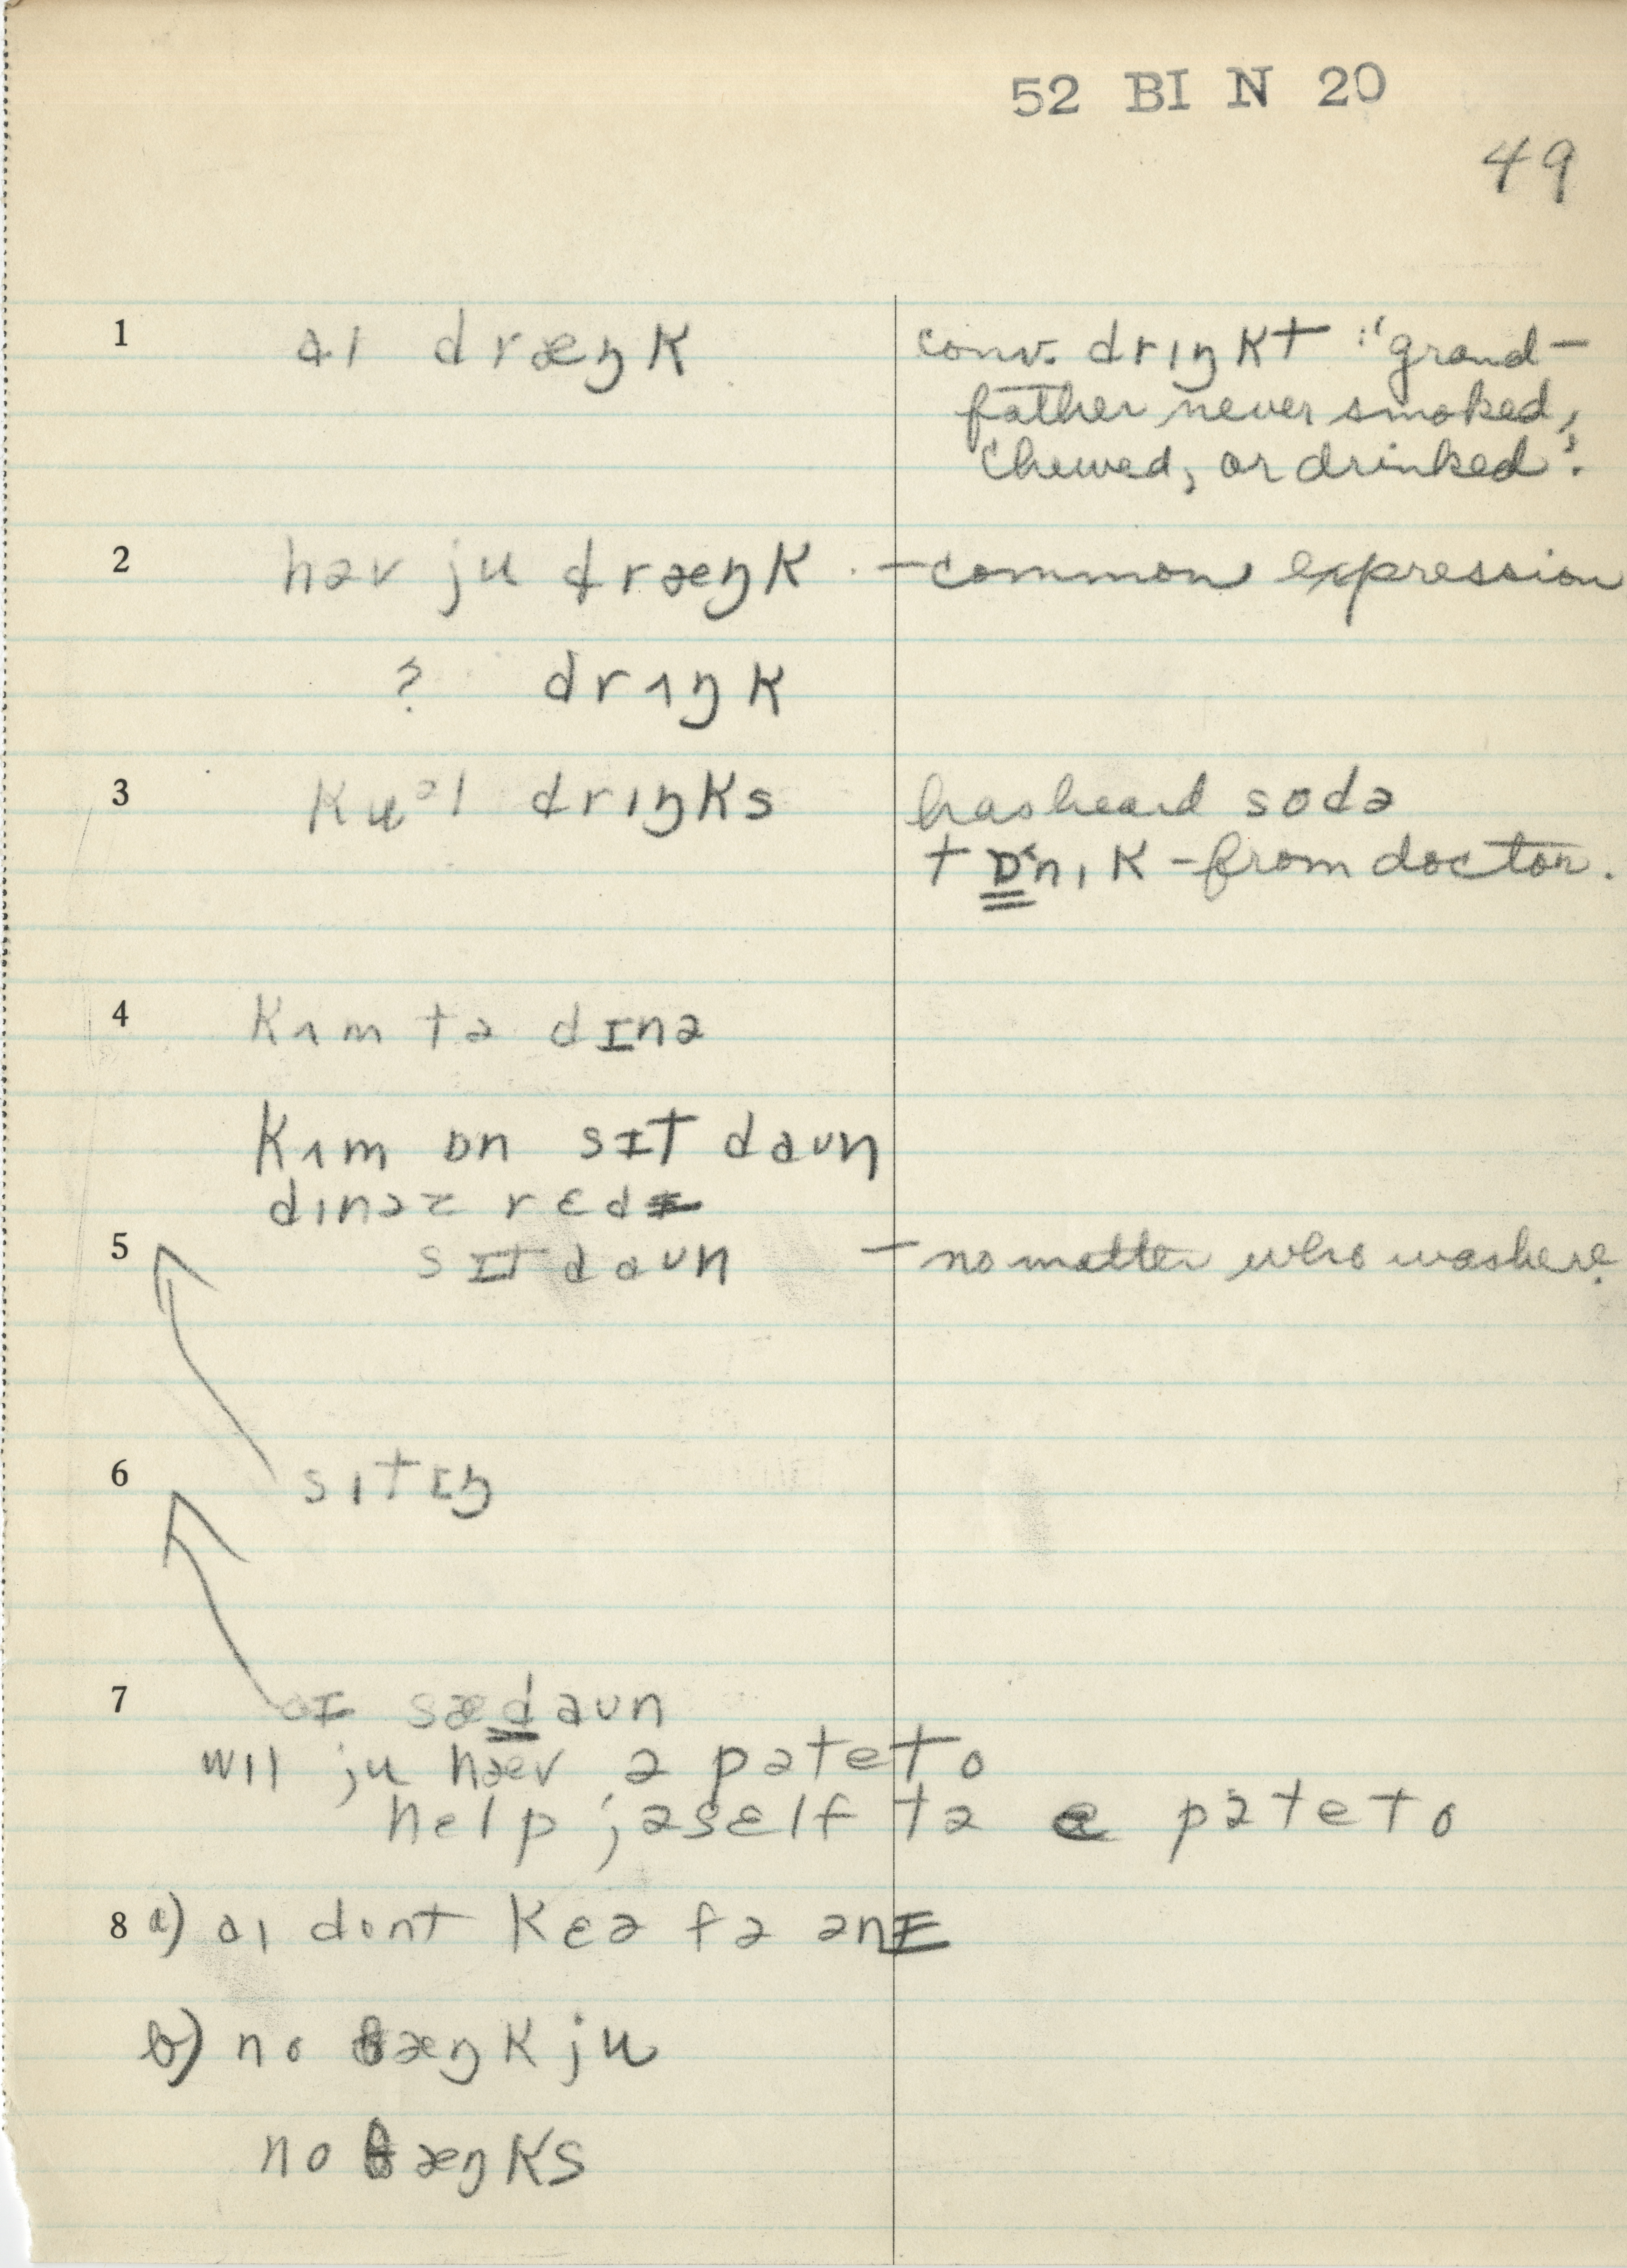 52 BI N 20
49
1 aɪ dræŋk conv. drɪŋkt :"grand-
father never smoked,
chewed, or drinked".
2 həv ju dræŋk - common expression
? drʌŋk
3 kuᵊl drɪŋks has heard sodə
tɒˑnɪk - from doctor.
4 kʌm tə dɪnə
kʌm ɒn sɪt daʊn
dɪnəz rɛdɪ
5 sɪt daʊn - no matter who was here.
6 sɪtɪŋ
7 aɪ sædaʊn
wɪl ju hæv ə pəteto
help jəsɛlf tə ə pəteto
8 a) aɪ dont kɛə fə ənɪ
b) no θæŋk ju
no θæŋks